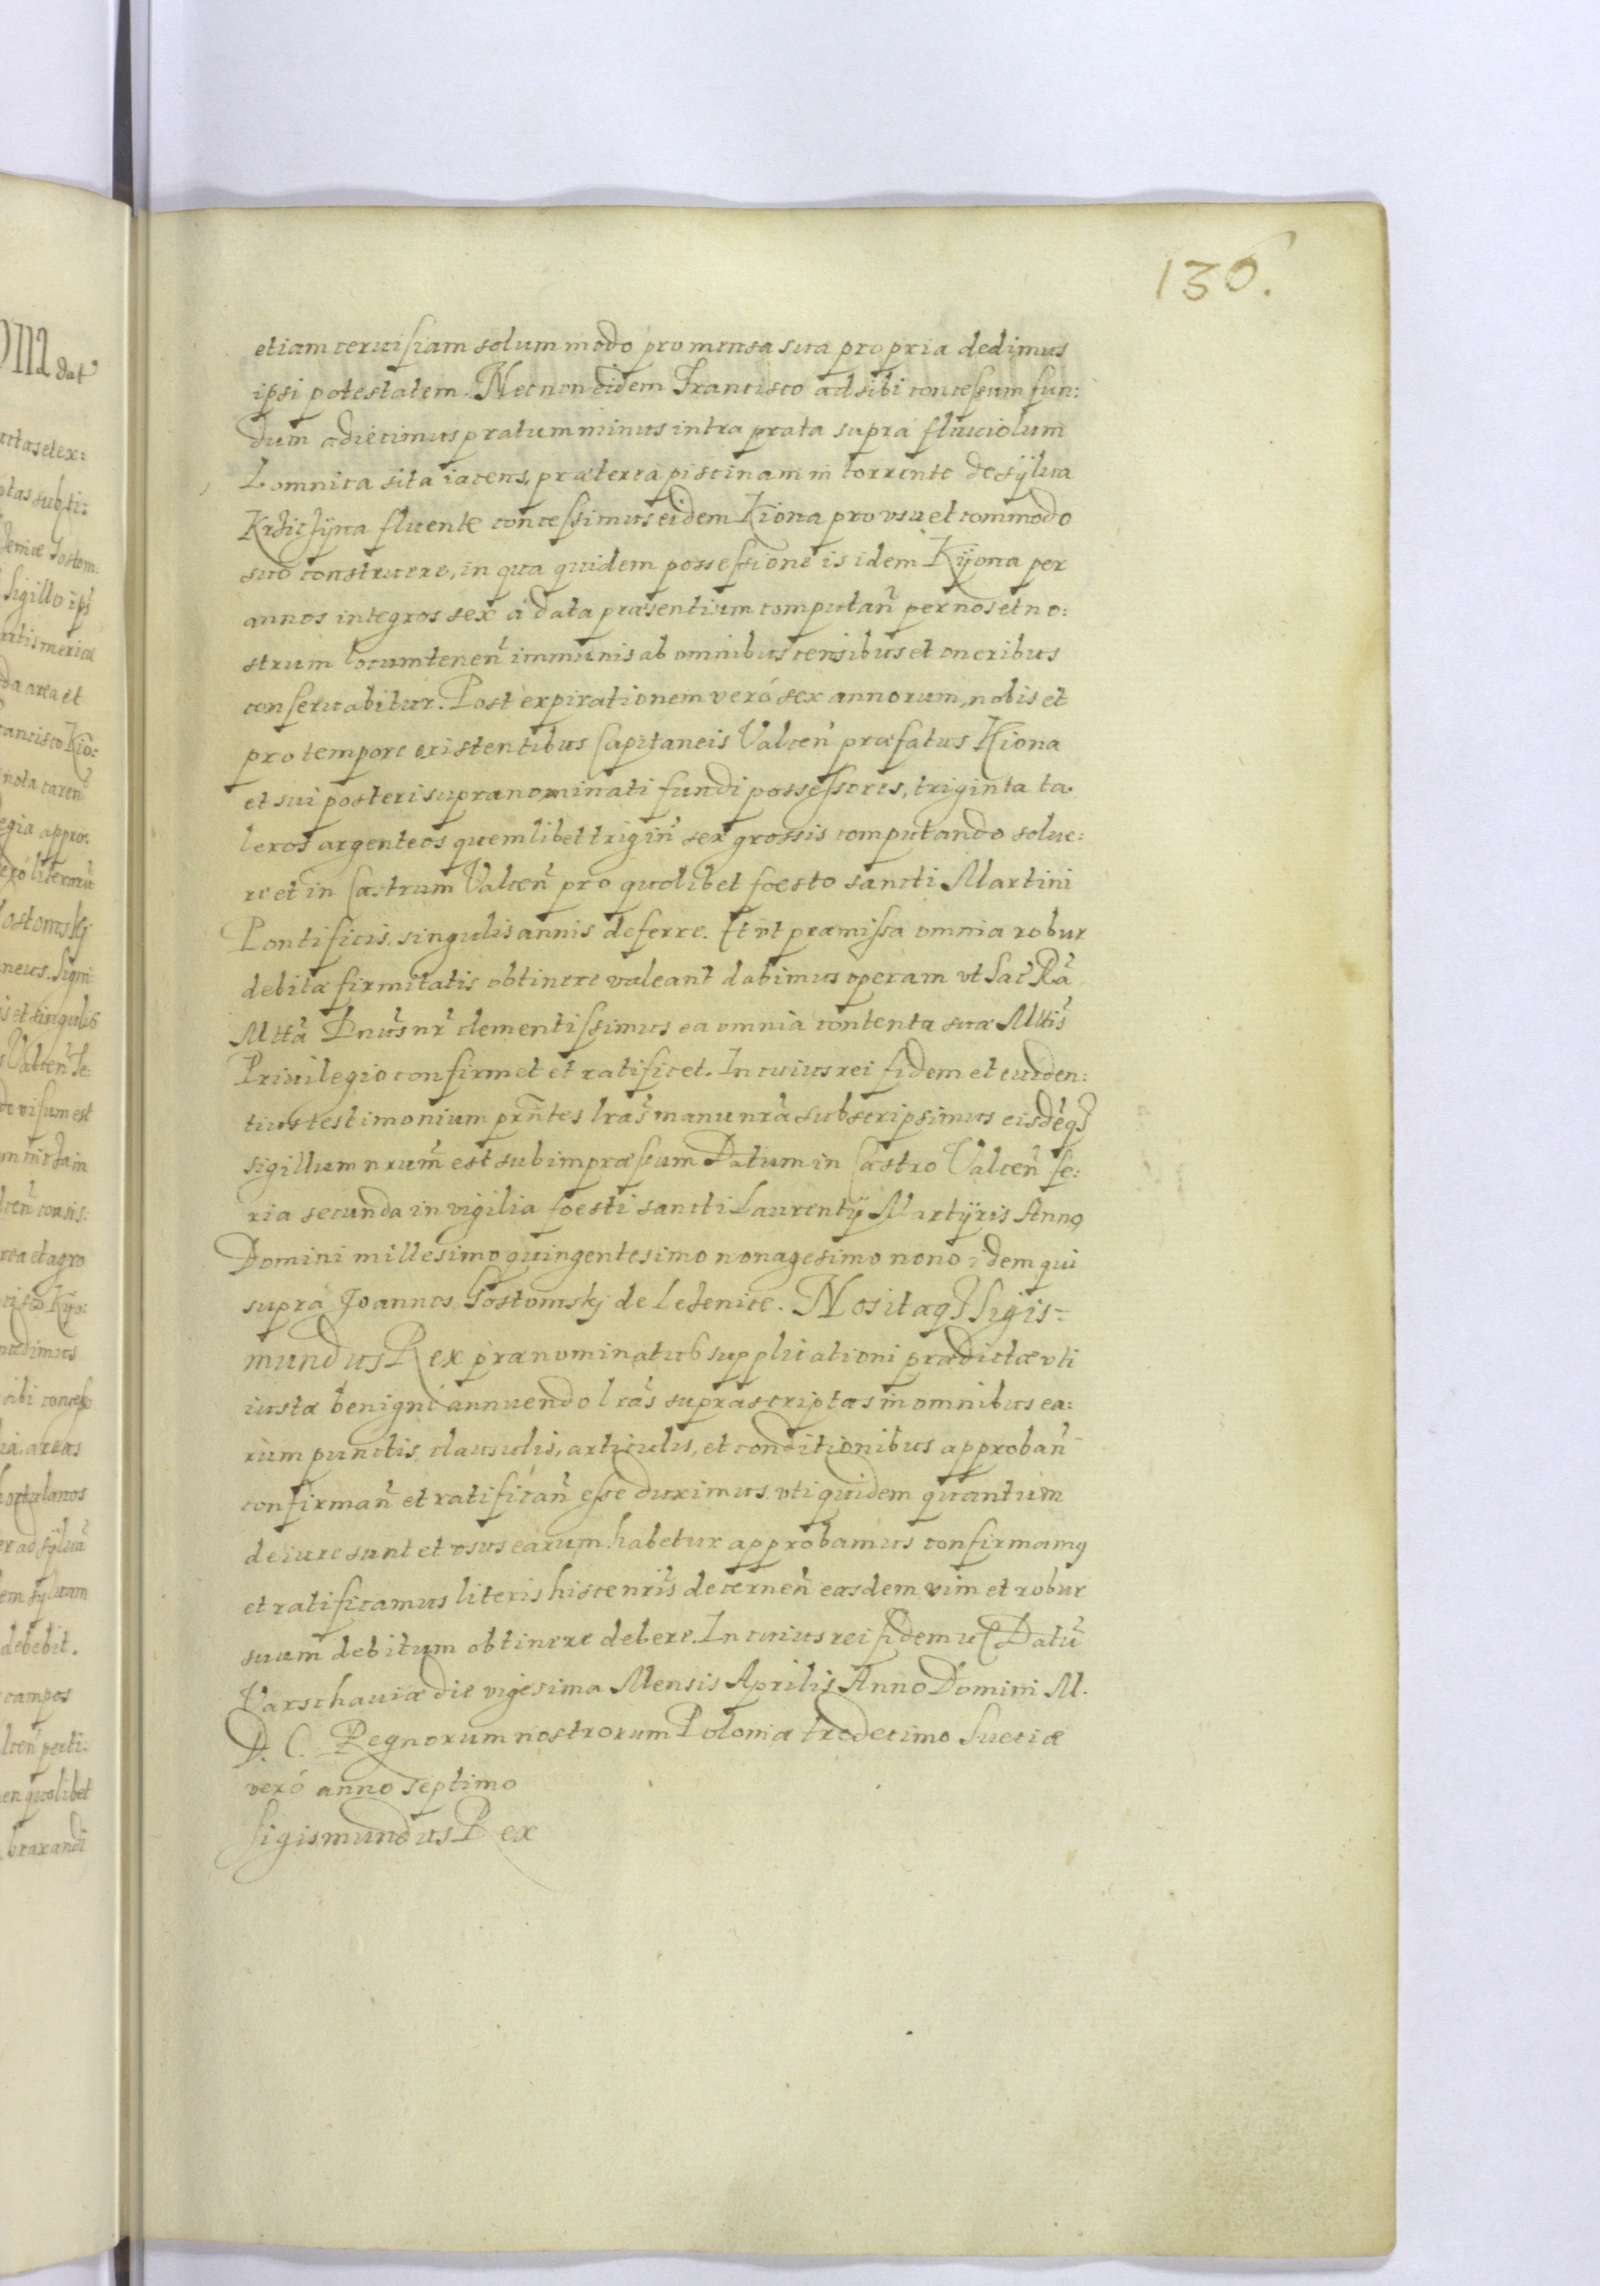 130.
etiam cervisiam solummodo pro mensa sua propria dedimus
ipsi potestatem. Nec non eidem Francisco ad sibi concessum fun:
dum adiecimus pratum minus intra prata supra fluuiolum
Lomnica sita iacens, præterea piscinam in torrente de sÿlua
fluente concessimus eidem Kiona pro vsu et commodo
suo construere, in qua quidem possessione is idem Kÿona per
annos integros sex à data præsentium computañ per nos et no:
strum locumteneñ immunis ab omnibus censibus et oneribus
conseruabitur. Post expirationem verò sex annorum, nobis et
pro tempore existentibus Capitaneis Valceñ præfatus Kiona
et sui posteri supranominati fundi possessores, triginta ta.
leros argenteos quemlibet trigiñ sex grossis computando solue:
re et in Castrum Valceñ pro quolibet foesto sancti Martini
Pontificis, singulis annis deferre. Et vt præmissa omnia robur
debitæ firmitatis obtinere valeant dabimus operam vt Sac̃ Rã
Mttã Dnũs nr̃ clementissimus ea omnia contenta suæ Mttis̃
Priuilegio confirmet et ratificet. In cuius rei fidem et euiden:
tius testimonium prñtes lrãs manu nrã subscripsimus eisdẽqȝ
sigillum nrum̃ est subimpræssum Datum in Castro Valceñ fe:
ria secunda in vigilia foesti sancti Laurentÿ Martÿris Anno
Domini millesimo quingentesimo nonagesimo nono idem qui
suprà Joannes Gostomskj de Lezenice. Nos itaqȝ Sigis=
mundus Rex prænominatus supplicationi prædictæ vti
iustæ benignè annuendo lrãs suprascriptas in omnibus ea:
rum punctis, clausulis, articulis, et conditionibus approbañ
confirmañ et ratificañ esse duximus, vti quidem quantum
de iure sunt et vsus earum habetur approbamus confirmamꝰ
et ratificamus literis hisce nrĩs decerneñ easdem vim et robur
suum debitum obtinere debere. In cuius rei fidem Datũ
Varschauiæ die vigesima Mensis Aprilis Anno Domini M.
D. C. Regnorum nostrorum Poloniæ tredecimo Sueciæ
verò anno septimo
Sigismundus Rex